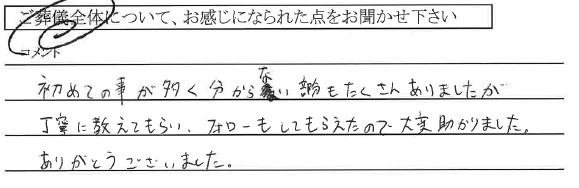 ご葬儀全体について、お感じになられた点をお聞かせ下さい
コメント
初めての事が多く分からない部もたくさんありましたが
丁寧に教えてもらい、フォローもしてもらえたので大変助かりました。
ありがとうございました。